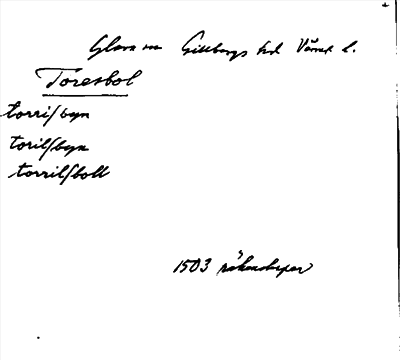 Glava sn Gillbergs hd Värml l.
Toresbol
torrisbyn
torilsbyn
torrilsboll
1503 räkenskaper